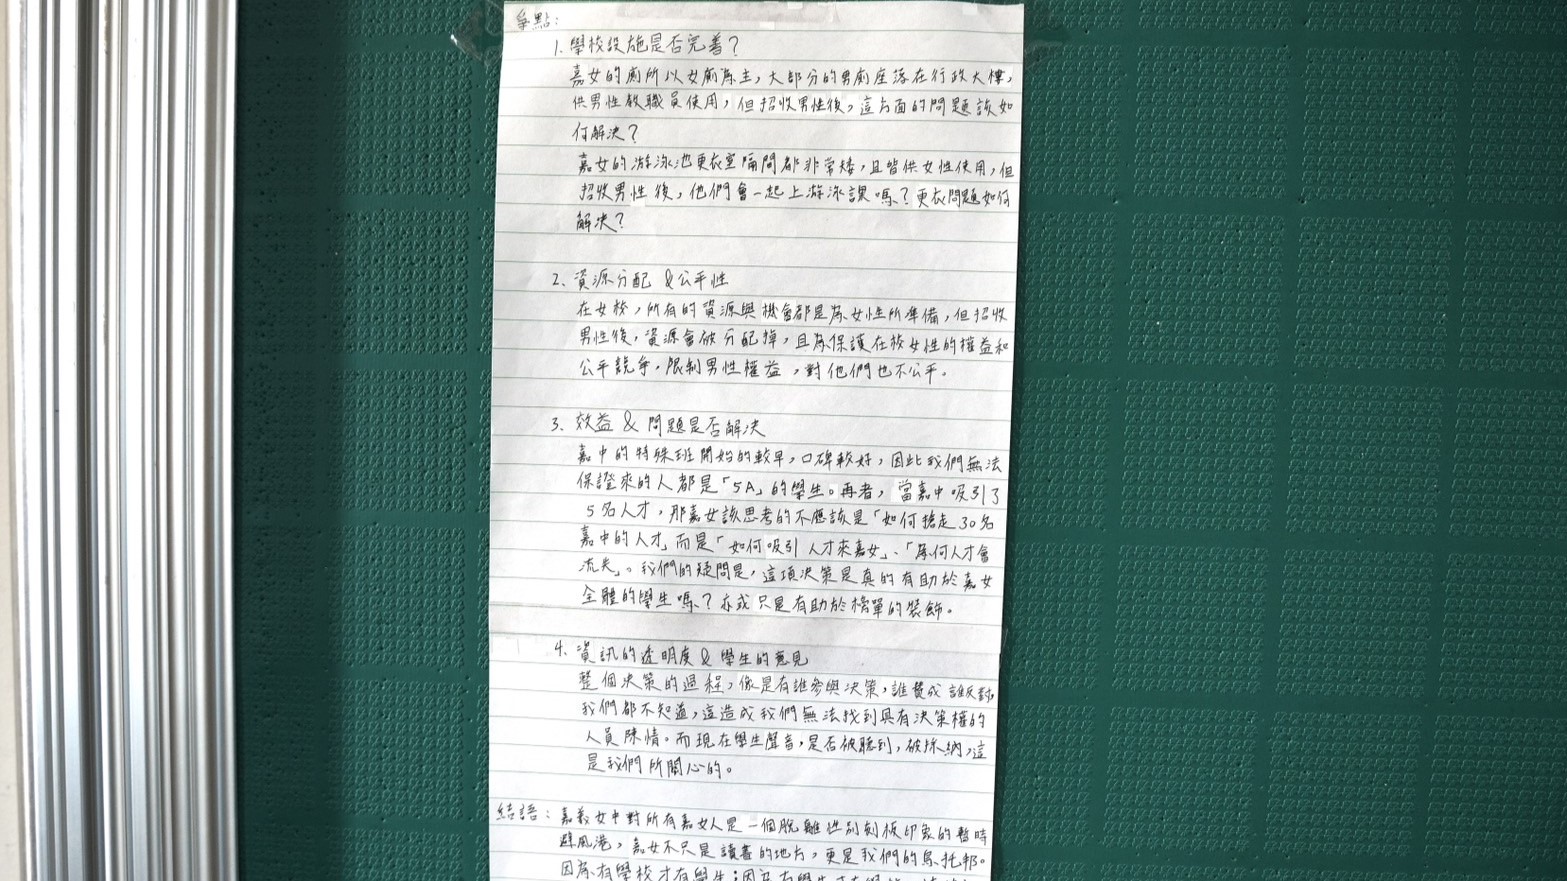 爭點：
1. 學校設施是否完善？
嘉女的廁所以女廁為主，大部分的男廁座落在行政大樓，
供男性教職員使用，但招收男性後，這方面的問題該如
何解決？
嘉女的游泳池更衣室隔間都非常矮，且皆供女性使用，但
招收男性後，他們會一起上游泳課嗎？更衣問題如何
解決？
2. 資源分配 & 公平性
在女校，所有的資源與機會都是為女性所準備，但招收
男性後，資源會被分配掉，且為保護在校女性的權益和
公平競爭，限制男性權益，對他們也不公平。
3. 效益 & 問題是否解決
嘉中的特殊班開始的較早，口碑較好，因此我們無法
保證來的人都是「5A」的學生。再者，當嘉中吸引了
5名人才，那嘉女該思考的不應該是「如何搶走30名
嘉中的人才」而是「如何吸引人才來嘉女」、「為何人才會
流失」。我們的疑問是，這項決策是真的有助於嘉女
全體的學生嗎？亦或只是有助於榜單的裝飾。
4. 資訊的透明度 & 學生的意見
整個決策的過程，像是有誰參與決策，誰贊成誰反對，
我們都不知道，這造成我們無法找到具有決策權的
人員陳情。而現在學生聲音，是否被聽到，被採納，這
是我們所關心的。
結語：嘉義女中對所有嘉女人是一個脫離性別刻板印象的暫時
避風港，嘉女不只是讀書的地方，更是我們的烏托邦。
因為有學校才有學生；因為有學生才有學校